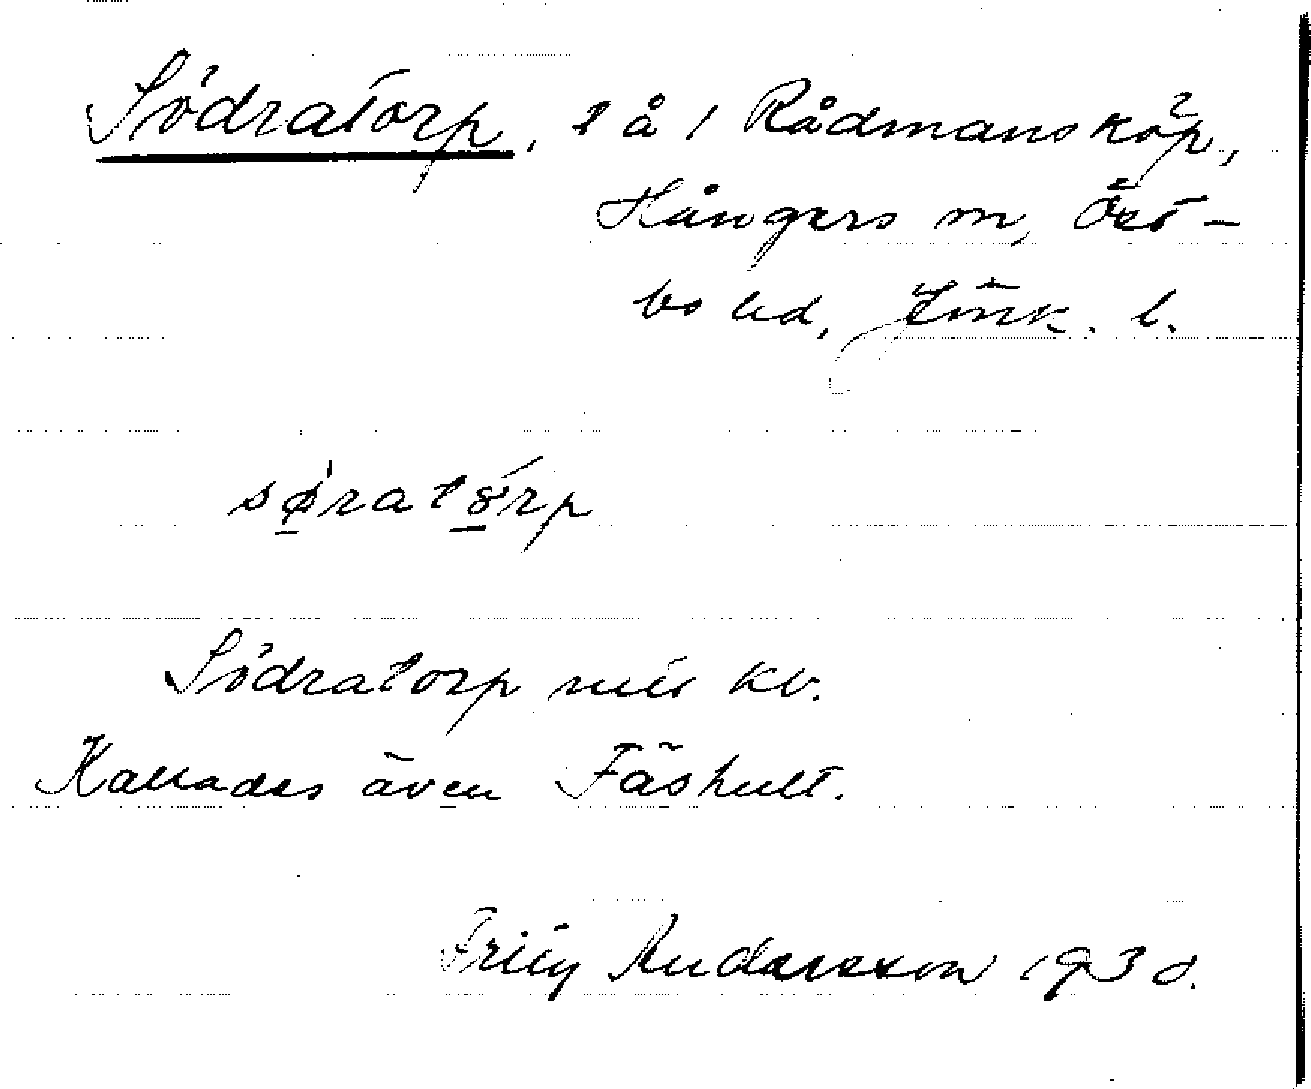 Södratorp, t å i Rådmansköp,
Hångers sn, Öst-
bo hd, Jönk. l.
søratörp
Södratorp kv.
Kallades även Fäshult.
Fritz Andersson 1930.